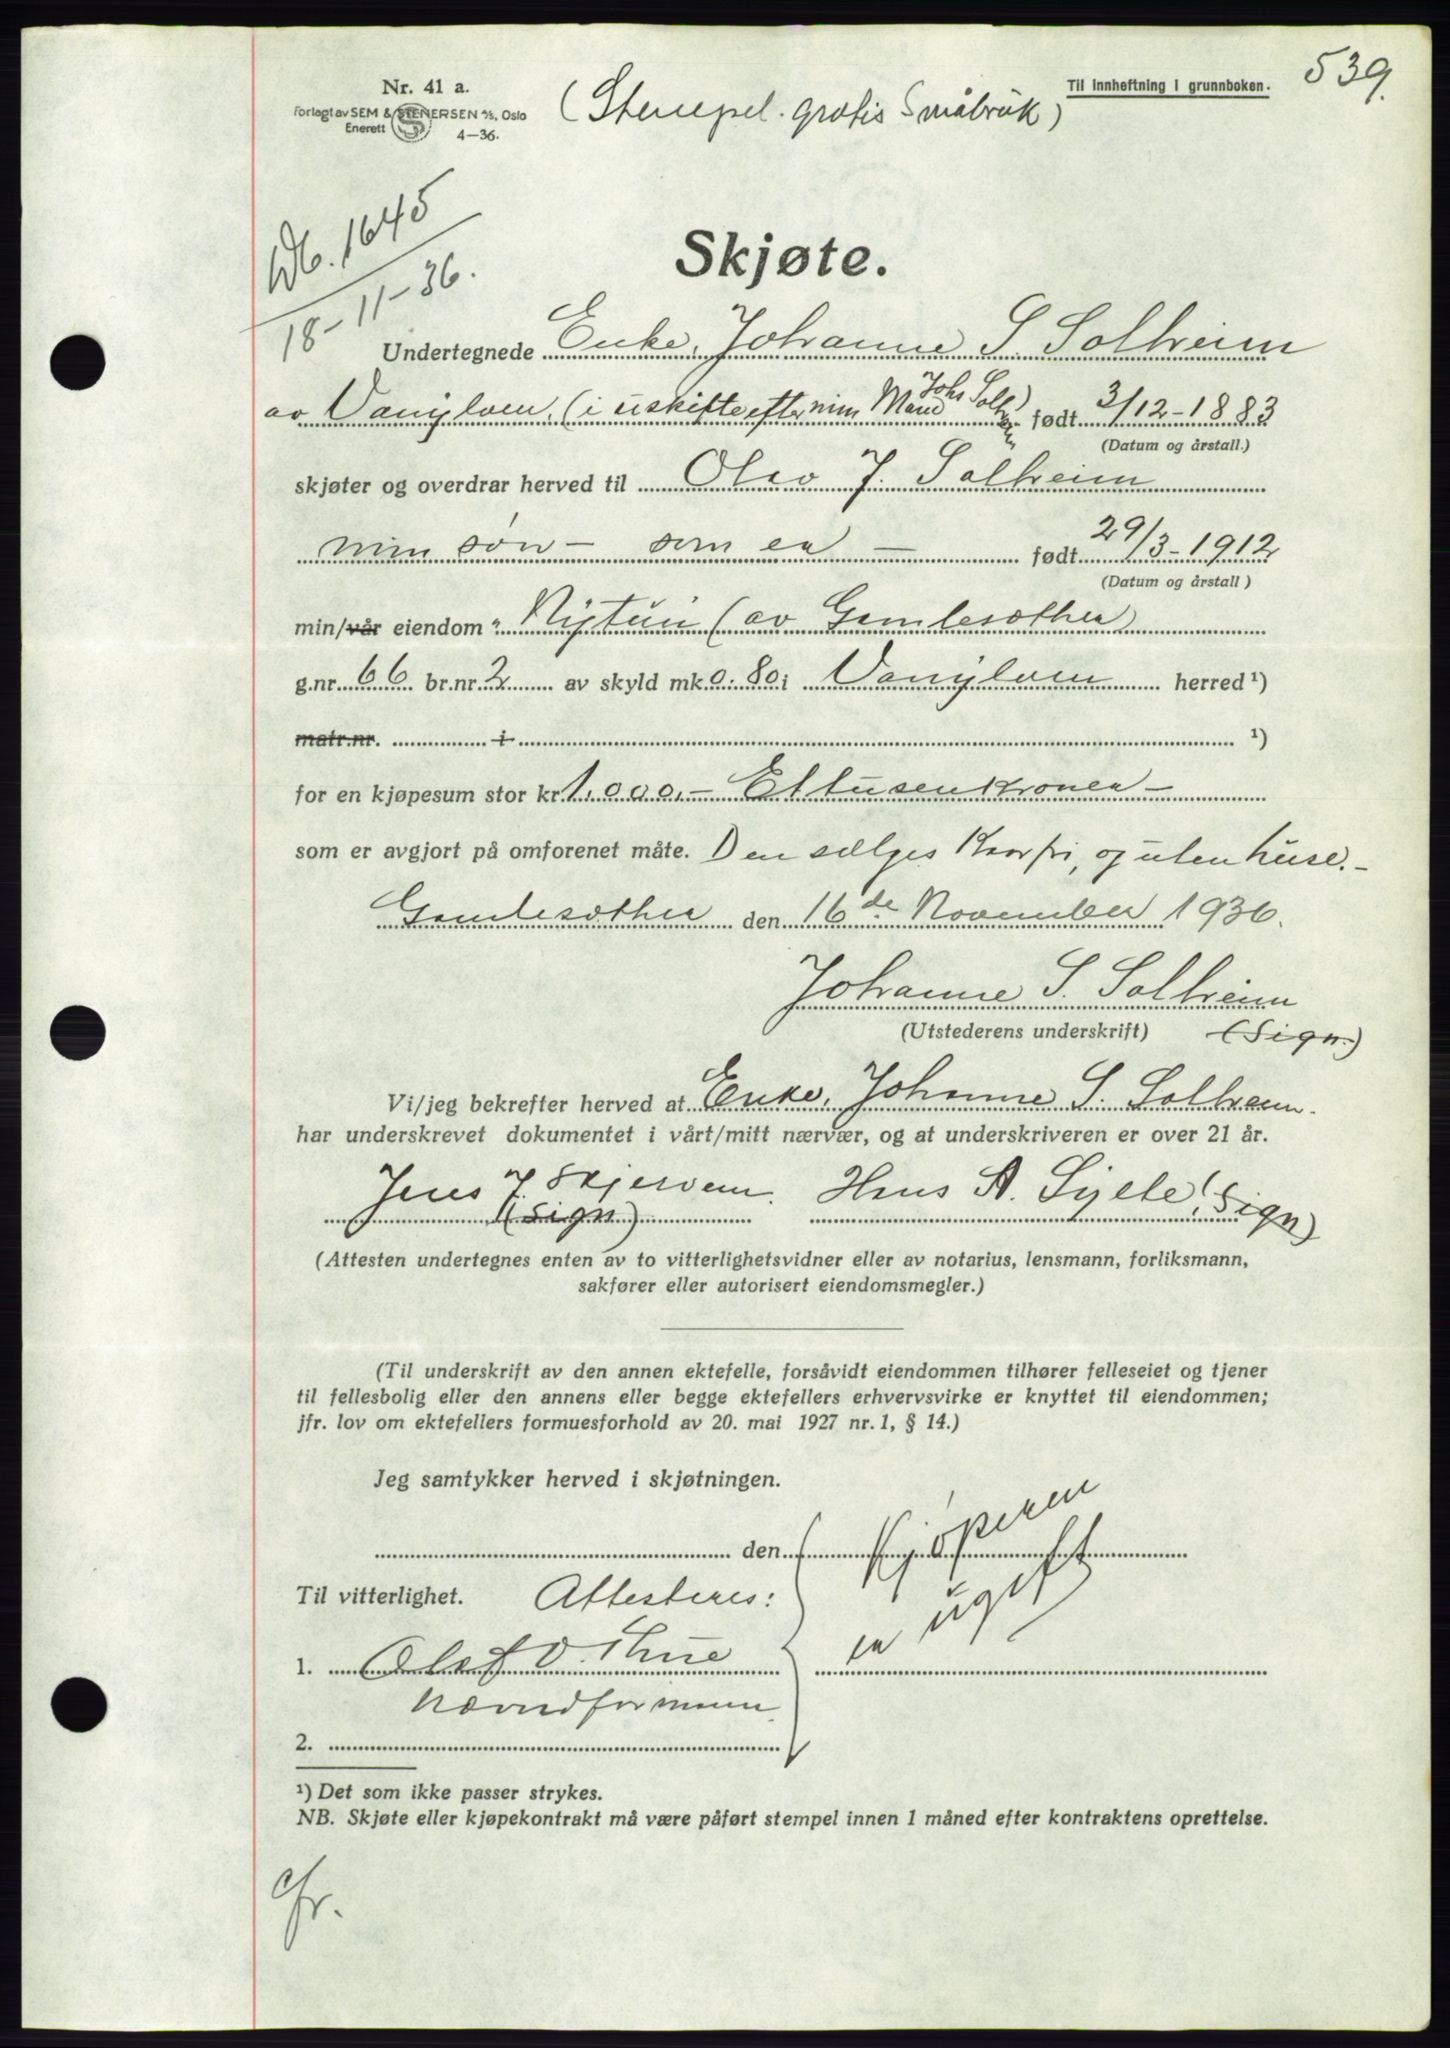 539.
Nr. 41 a.
Til innheftning i grunnboken.
Forlagt av SEM & STENERSEN A/S, Oslo
Enerett 4—36.
(Stempel. gratis Småbruk)
Db. 1645
18-11-36.
Skjøte.
Undertegnede Enke, Johanne S. Solheim
av Vanylven, (i uskifte efter min Mand Johs Solheim) født 3/12-1883
(Datum og årstall.)
skjøter og overdrar herved til Olav J. Solheim
min søn — som er — født 29/3-1912
(Datum og årstall )
min/vår eiendom „Nytun (av Gamlesæther)
g.nr. 66 br.nr. 2 av skyld mk. 0.80 i Vanylven herred ¹)
matr.nr. i ¹)
for en kjøpesum stor kr. 1.000.- Ettusenkroner —
som er avgjort på omforenet måte. Den sælges kårfri, og uten huse.-
Gamlesæther den 16de November 1936.
Johanne S. Solheim
(Utstederens underskrift) (Sign.)
Vi/jeg bekrefter herved at Enke, Johanne S. Solheim.
har underskrevet dokumentet i vårt/mitt nærvær, og at underskriveren er over 21 år.
Jens J. Skjervem. Hans A. Sylte (Sign)
(Sign)
(Attesten undertegnes enten av to vitterlighetsvidner eller av notarius, lensmann, forliksmann,
sakfører eller autorisert eiendomsmegler.)
(Til underskrift av den annen ektefelle, forsåvidt eiendommen tilhører felleseiet og tjener
til fellesbolig eller den annens eller begge ektefellers erhvervsvirke er knyttet til eiendommen;
jfr. lov om ektefellers formuesforhold av 20. mai 1927 nr. 1, § 14.)
Jeg samtykker herved i skjøtningen.
den
Kjøperen
er ugift
Til vitterlighet. Attesteres:
1. Olaf O. Thue
Nævndformann.
2.
¹) Det som ikke passer strykes.
NB. Skjøte eller kjøpekontrakt må være påført stempel innen 1 måned efter kontraktens oprettelse.